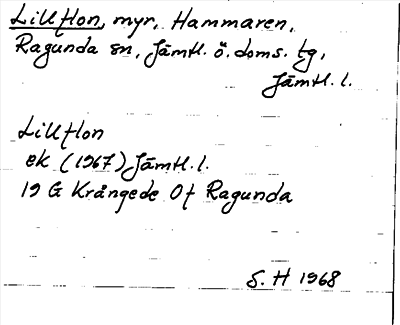 Lillflon, myr, Hammaren,
Ragunda sn, Jämtl. ö. doms. tg,
Jämtl. l.
Lillflon
ek (1967) Jämtl. l.
19 G Krångede Of Ragunda
S. H 1968